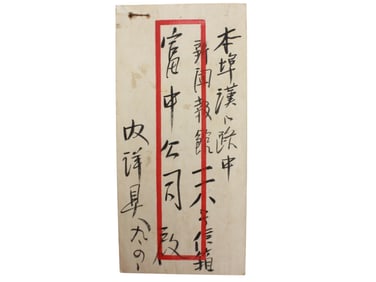 本埠漢口路中
新聞報館二六八号信箱
富中公司啟
内詳具